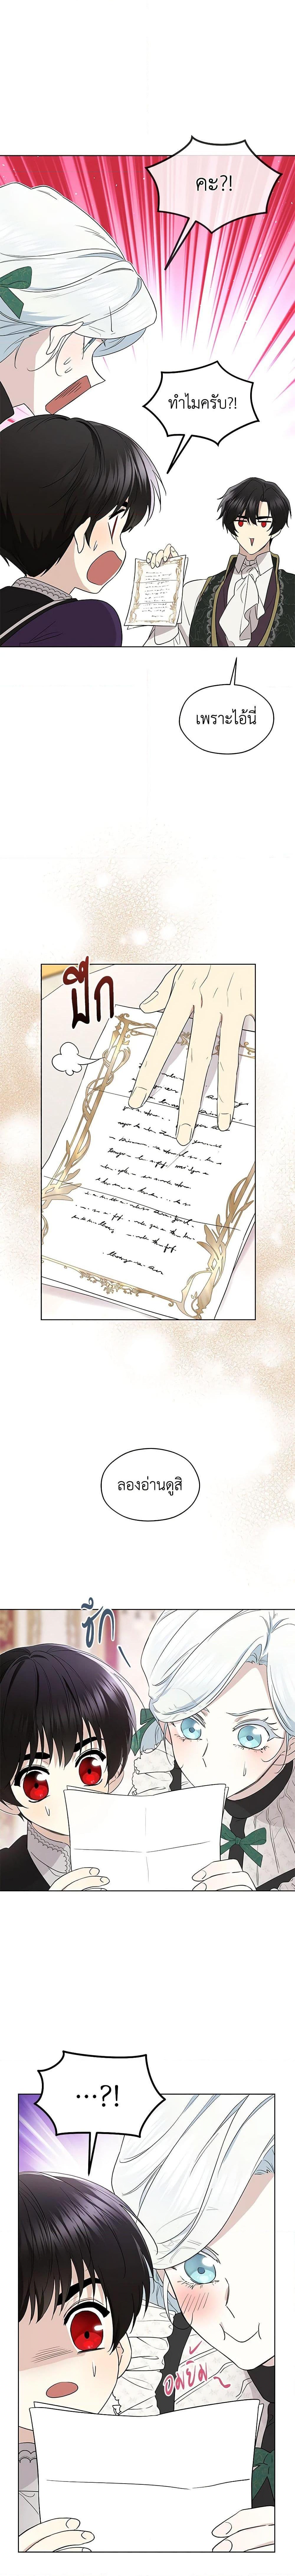 คะ?!
ทำไมครับ?!
เพราะไอ้นี่
ปึก
ลองอ่านดูสิ
ชึก
...?!
อมยิ้ม~